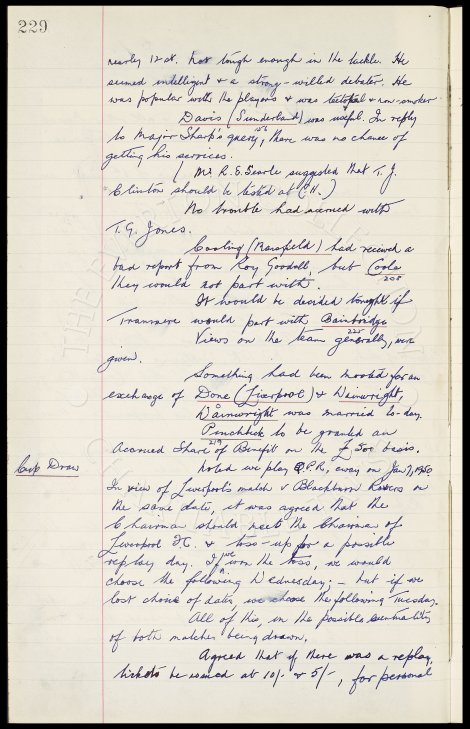 229
nearly 12 st. Not tough enough in the tackle. He
seemed intelligent & a strong-willed debater. He
was popular with the players & was teetotal & non-smoker.
Davis (Sunderland) was useful. In reply
to Major Sharp's query, there was no chance of
getting his services.
(Mr R.E. Searle suggested that T.J.
Clinton should be tested at C.H.)
No trouble had accrued with
T.G. Jones.
Cooling (Mansfield) had received a
bad report from Roy Goodall, but Coole
208
they would not part with.
It would be decided tonight if
Tranmere would part with Bainbridge
225
Views on the team generally, were
given.
Something had been mooted for an
exchange of Done (Liverpool) & Wainwright,
Wainwright was married to-day.
Pinchbeck to be granted an
219
Accrued Share of Benefit on the £500 basis.
Cup Draw
Noted we play Q.P.R., away on Jan 7, 1950
In view of Liverpool's match v Blackburn Rovers on
the same date, it was agreed that the
Chairman should meet the Chairman of
Liverpool FC. & toss-up for a possible
replay day. If we won the toss, we would
choose the following Wednesday; - but if we
lost choice of date, we choose the following Tuesday.
All of this, in the possible
of both matches being drawn.
Agreed that if there was a replay,
tickets be issued at 10/- & 5/-, for personal